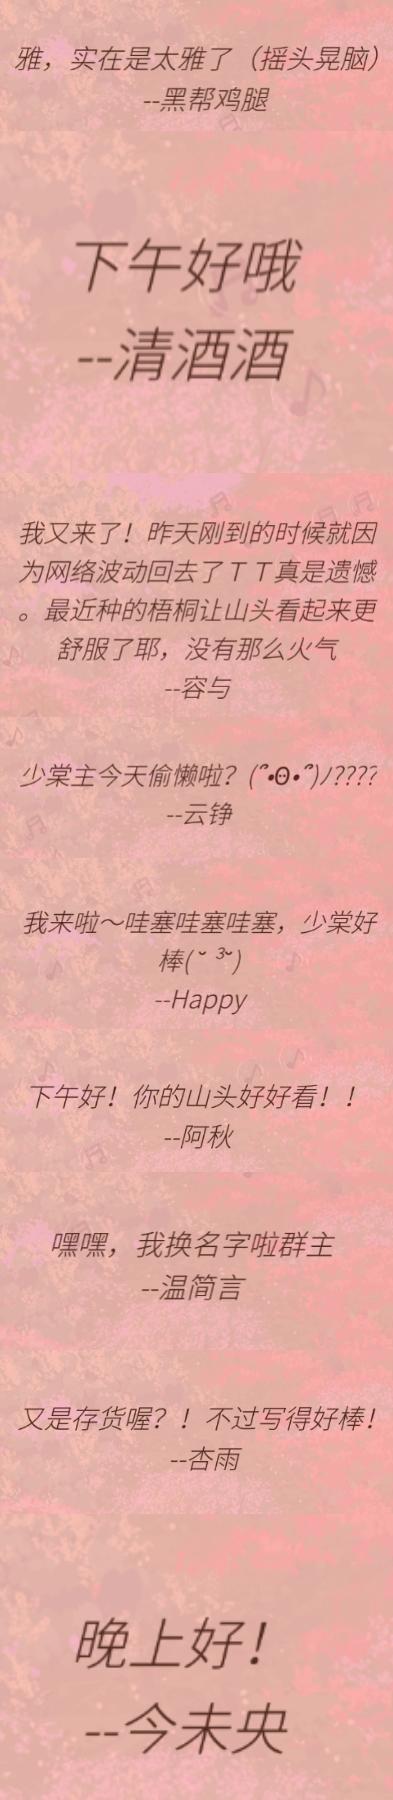 雅，实在是太雅了（摇头晃脑）
--黑帮鸡腿
下午好哦
--清酒酒
我又来了！昨天刚到的时候就因
为网络波动回去了ＴＴ真是遗憾
。最近种的梧桐让山头看起来更
舒服了耶，没有那么火气
--容与
少棠主今天偷懒啦？(՞•Ꙫ•՞)ﾉ????
--云铮
我来啦～哇塞哇塞哇塞，少棠好
棒(˘ ³˘)
--Happy
下午好！你的山头好好看！！
--阿秋
嘿嘿，我换名字啦群主
--温简言
又是存货喔？！不过写得好棒！
--杏雨
晚上好！
--今未央